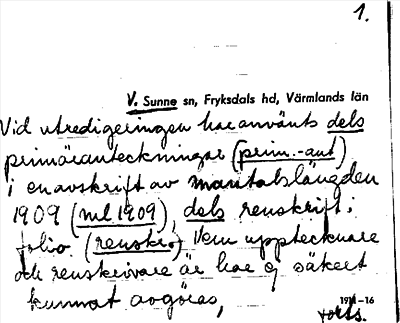 1.
V. Sunne sn, Fryksdals hd, Värmlands län
Vid utredigeringen har använts dels
primäranteckningar (prim.-ant)
i en avskrift av mantalslängden
1909 (ml 1909), dels renskrift i
folio (renskr.) Vem upptecknare
och renskrivare är har ej säkert
kunnat avgöras,
1911-16
forts.